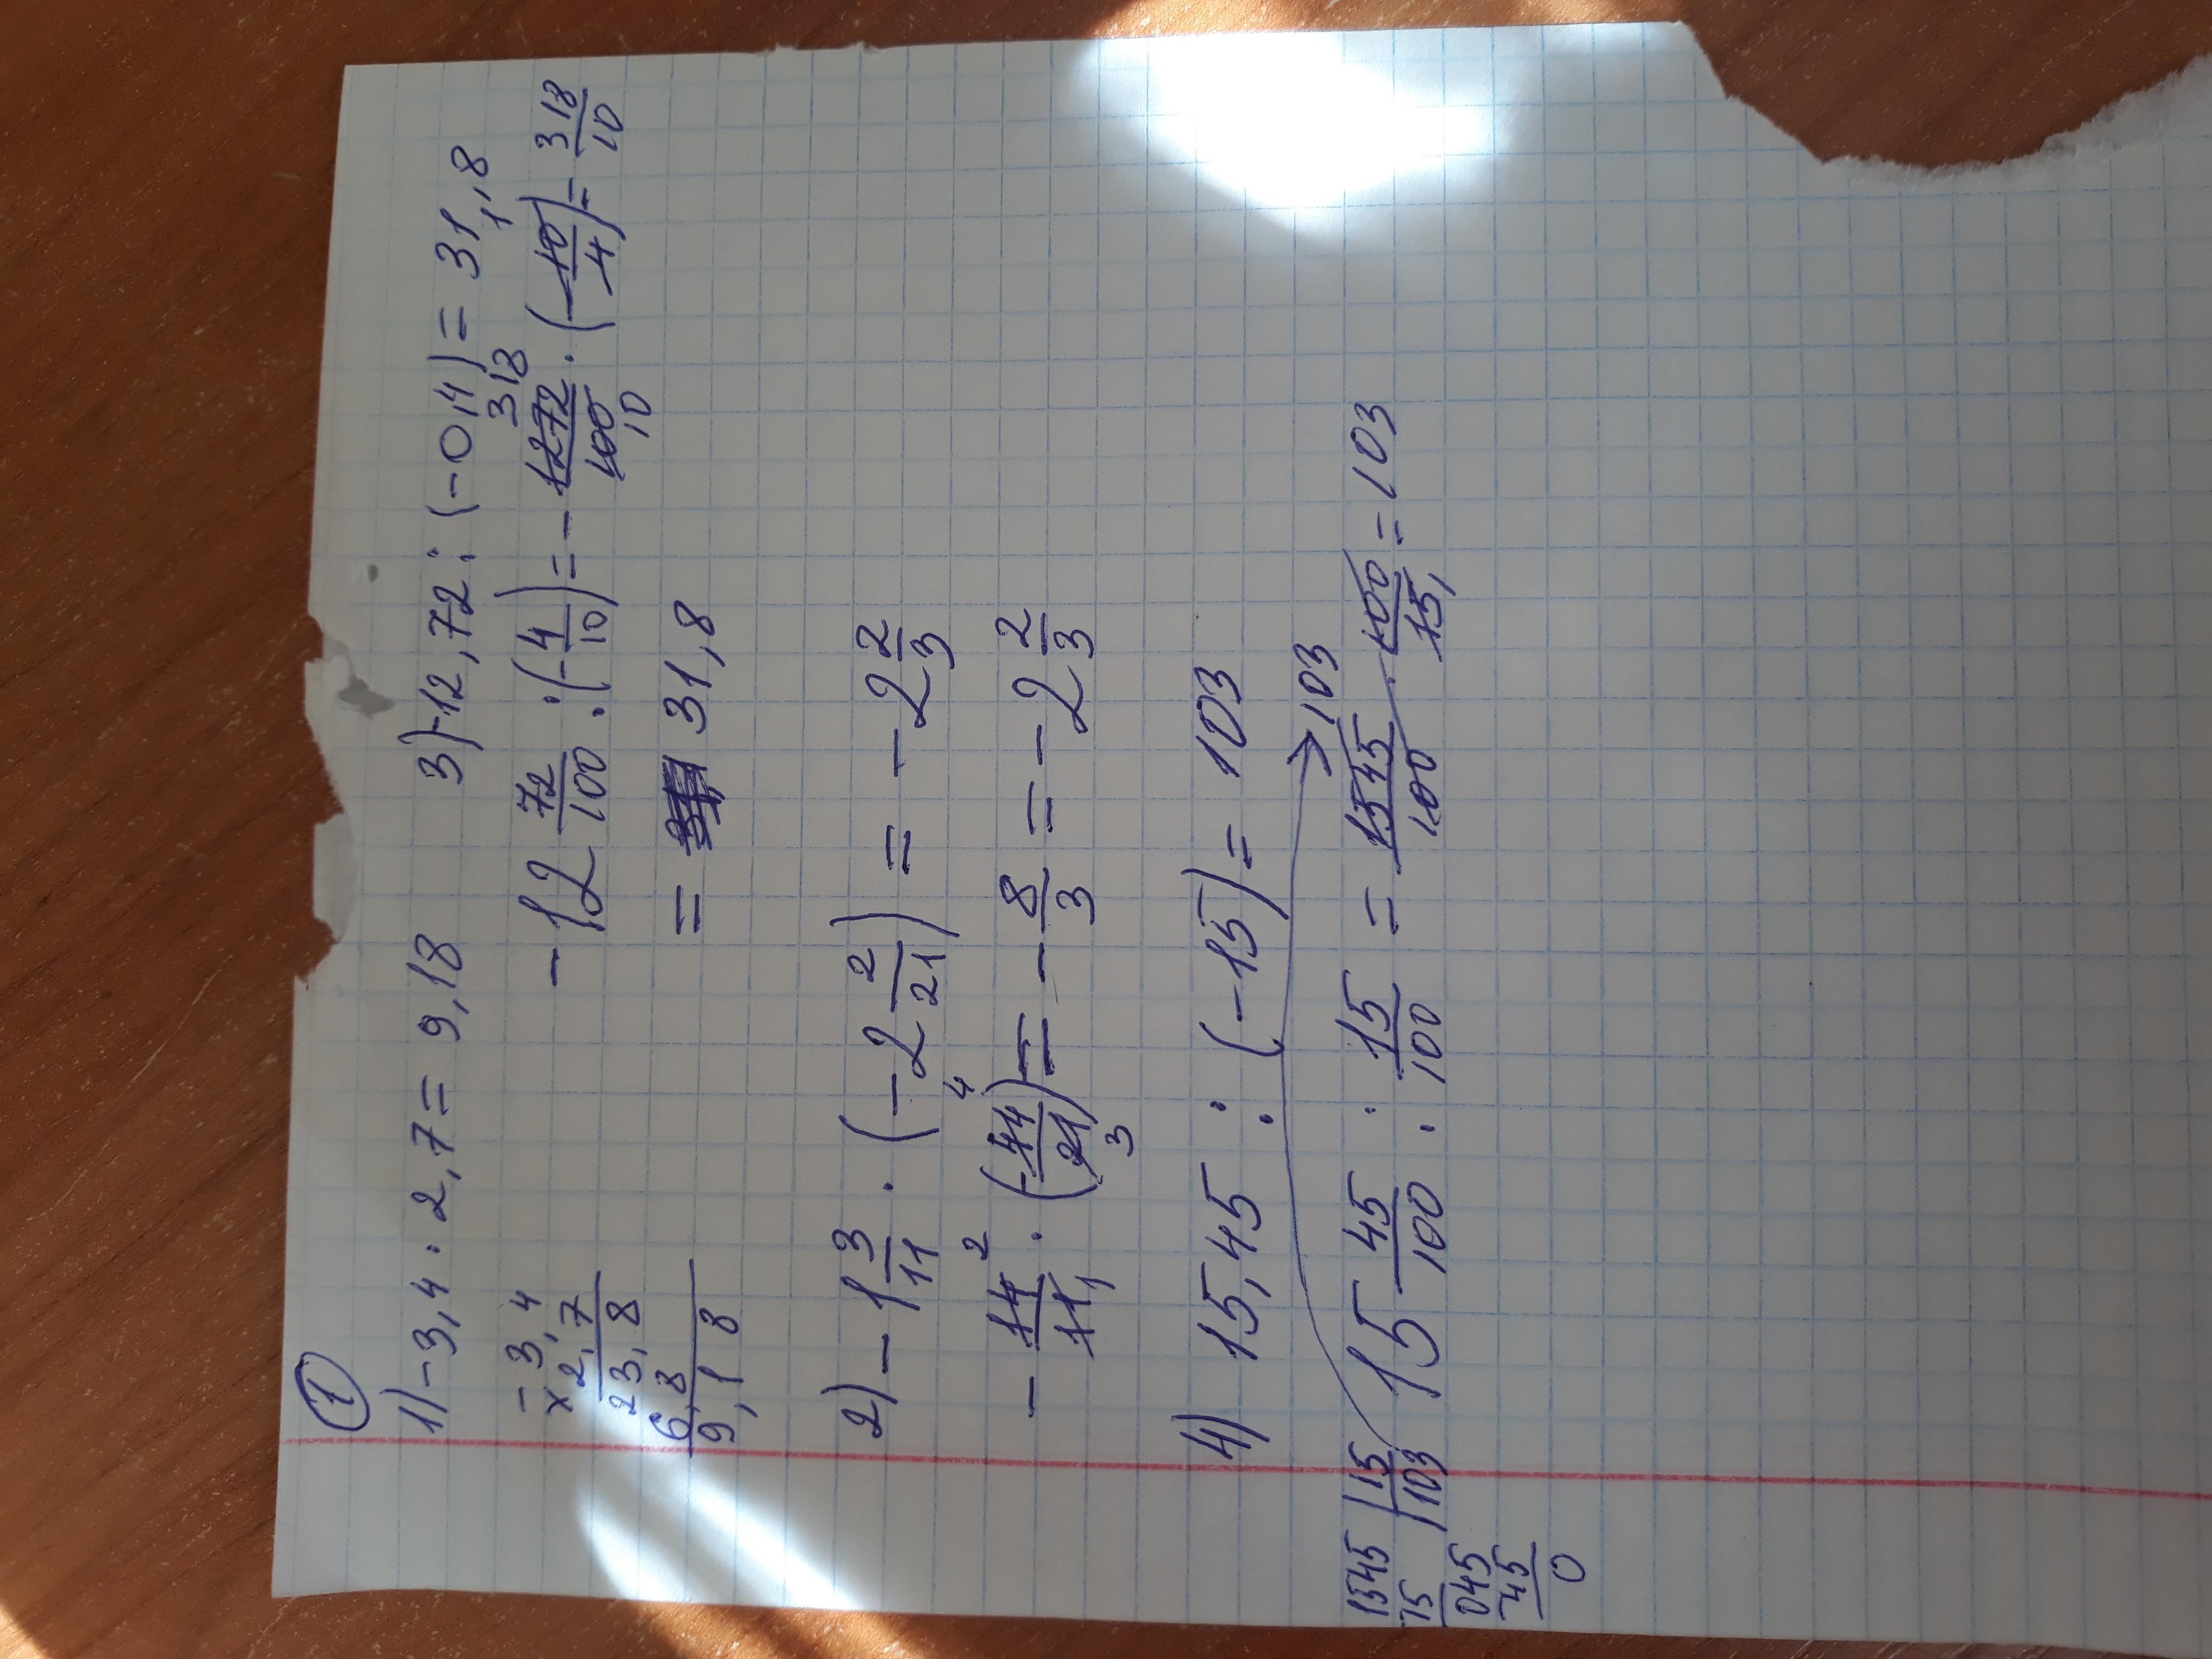 1
1) -3,4 · 2,7 = 9,18
-3,4
× 2,7
23,8
6 8
9,18
3) -12,72 : (-0,4) = 31,8
-12 72/100 : (-4/10) = -1272/100 · (-10/4) = 318/10
318
10
= 31,8
2) -1 3/11 · (-2 2/21) = -2 2/3
-14/11 · (-44/21) = -8/3 = -2 2/3
2 4
1 3
4) 15,45 : (-15) = 103
103
15 45/100 : 15/100 = 1545/100 · 100/15 = 103
1
1545 | 15
15 | 103
045
45
0